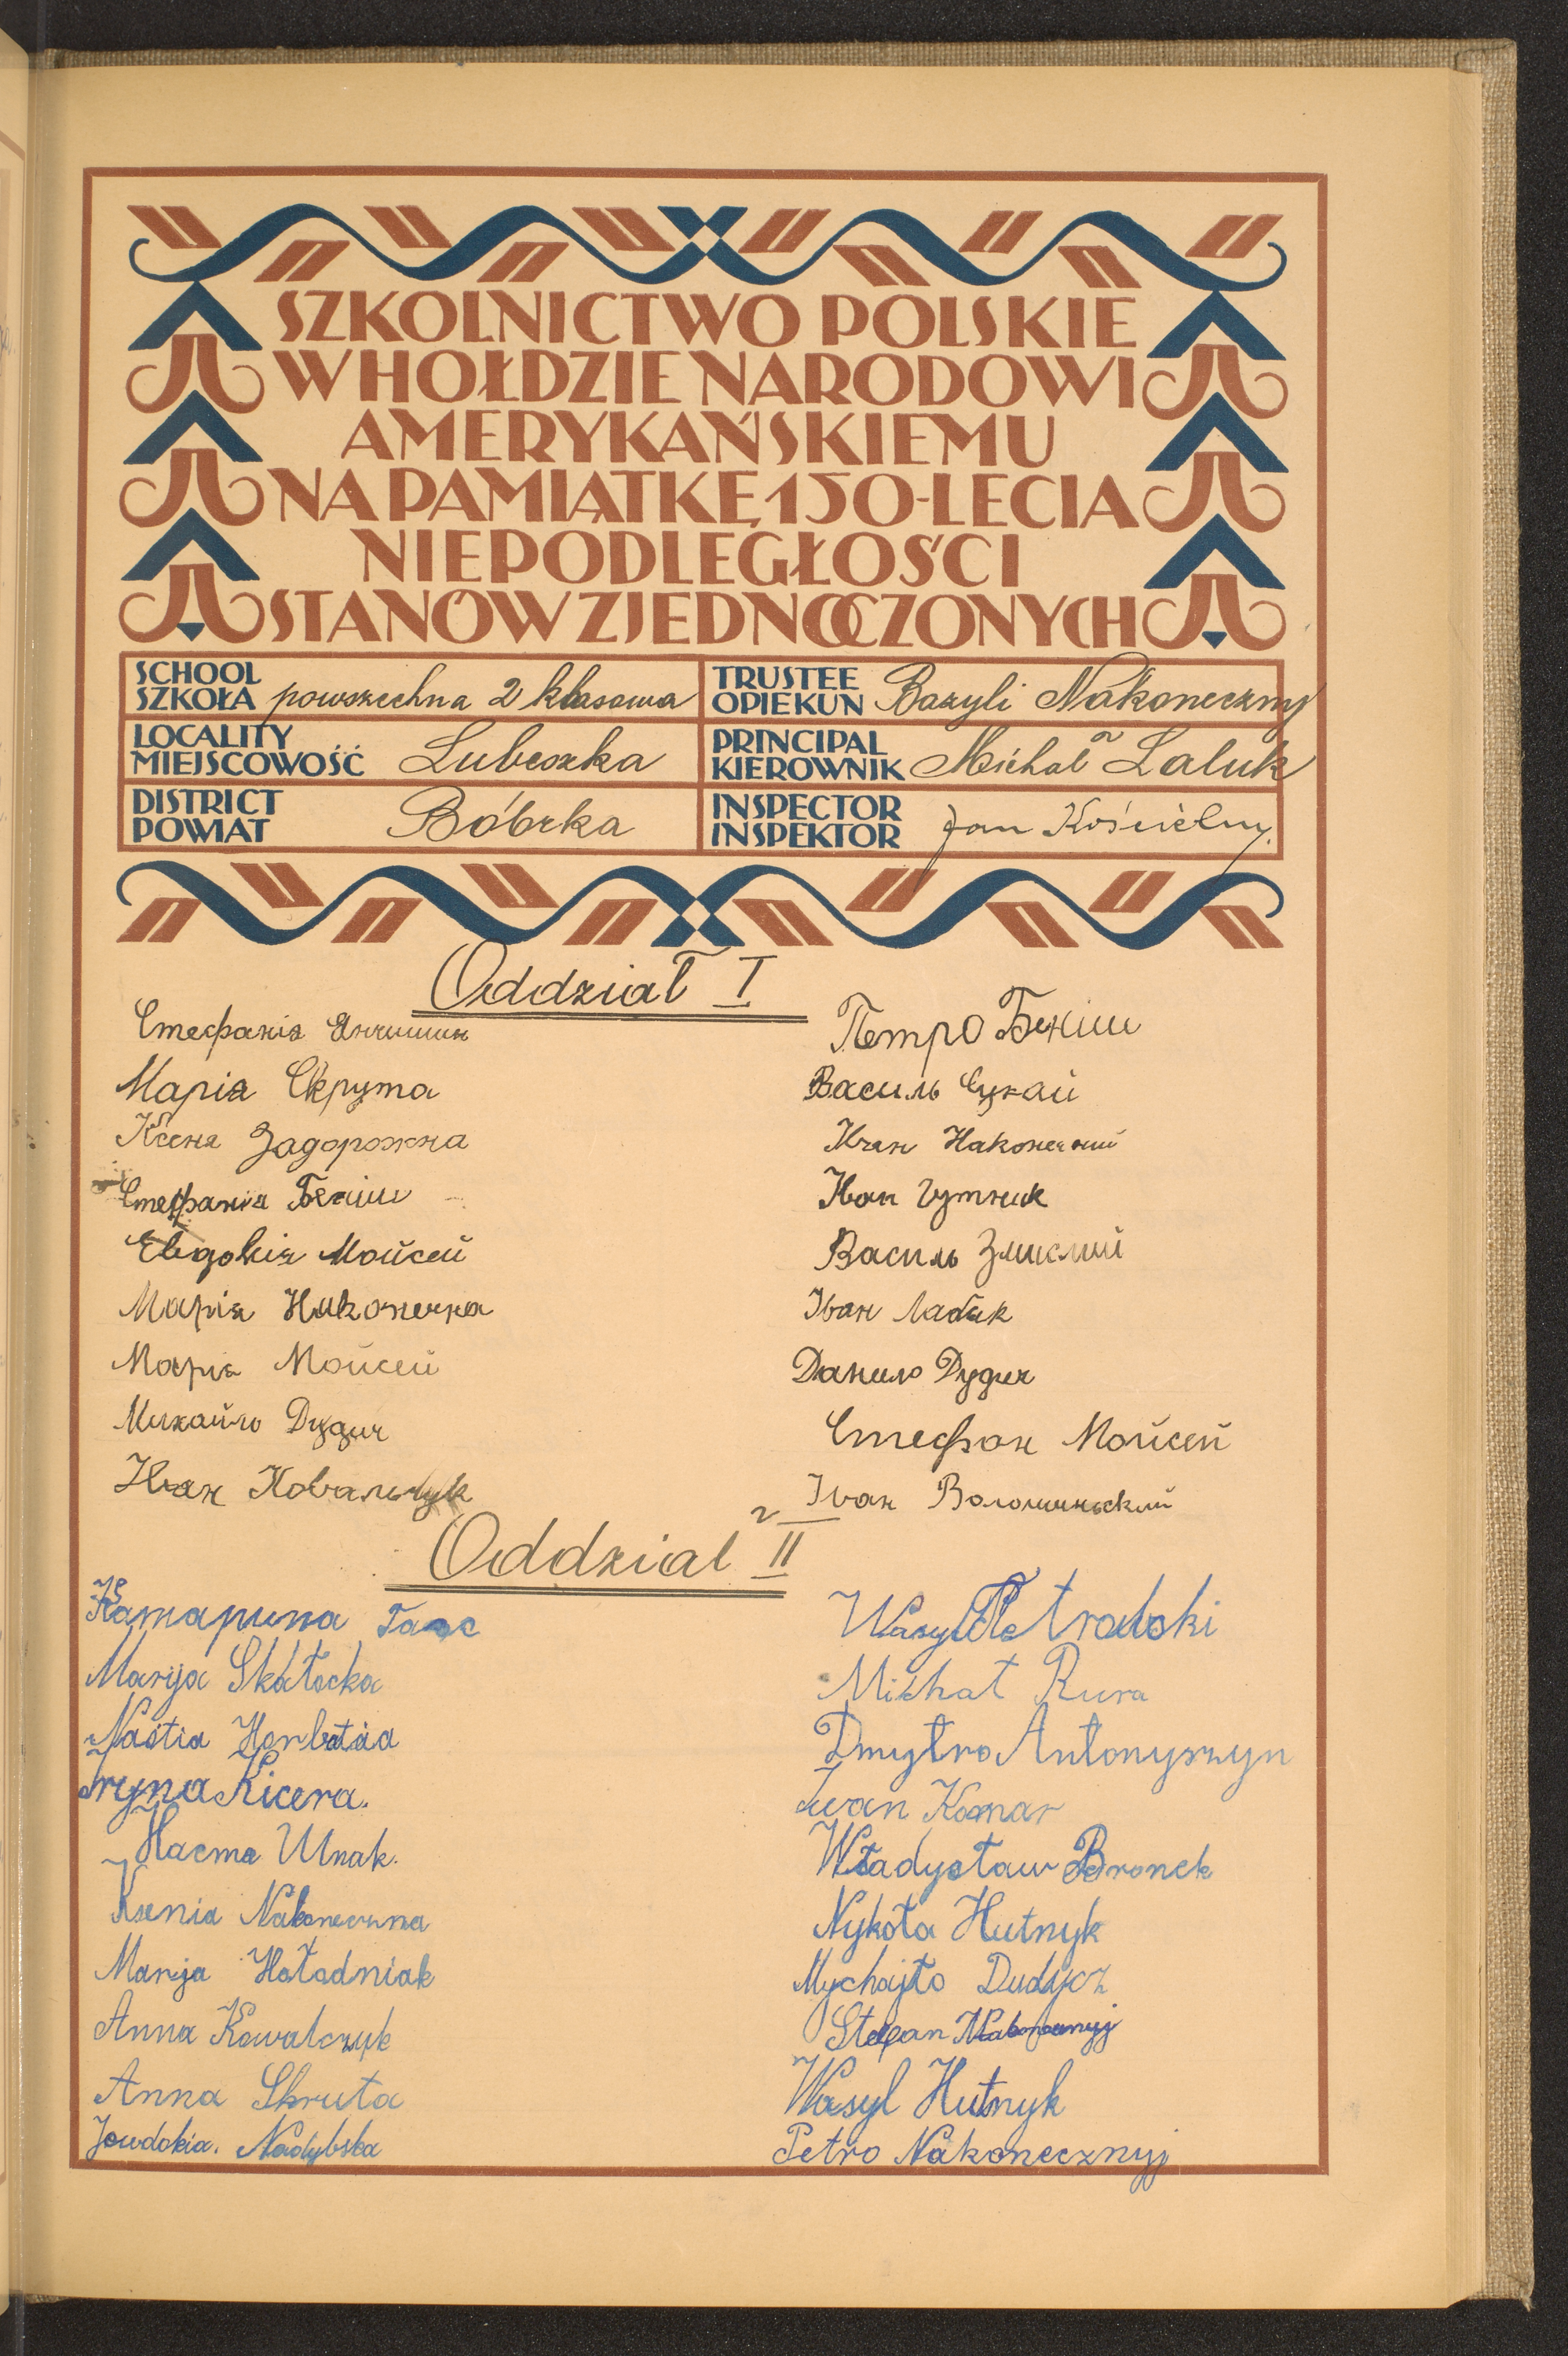 SZKOLNICTWO POLSKIE
W HOŁDZIE NARODOWI
AMERYKAŃSKIEMU
NA PAMIĄTKĘ 150-LECIA
NIEPODLEGŁOŚCI
STANÓW ZJEDNOCZONYCH
SCHOOL
SZKOŁA powszechna 2 klasowa
TRUSTEE
OPIEKUN Bazyli Nakoneczny
LOCALITY
MIEJSCOWOŚĆ Lubeszka
PRINCIPAL
KIEROWNIK Michał Laluk
DISTRICT
POWIAT Bóbrka
INSPECTOR
INSPEKTOR Jan Kościelny.
Oddział I
Стефанія Янчишин
Марія Скрута
Ксеня Задорожна
Стефанія Беніш
Евдокія Мойсей
Марія Наконечна
Марія Мойсей
Михайло Дудич
Іван Ковальчук
Петро Беніш
Василь Сукай
Іван Наконечний
Іван Гутник
Василь
Іван Лабяк
Данило Дудич
Стефан Мойсей
Іван Волошиньский
Oddział II
Катарина
Marija Skałocka
Nastia Horbataa
Iryna Kicera.
Настя
Ksenia Nakoneczna
Marija Hoładniak
Anna Kowalczuk
Anna Skruta
Jowdokia. Nadybska
Wasyl
Michał Rura
Dmytro Antonyszyn
Iwan Komar
Władysław Bronek
Nykoła Hutnyk
Mychajło Dudycz
Stefan Nakonecznyj
Wasyl Hutnyk
Petro Nakonecznyj